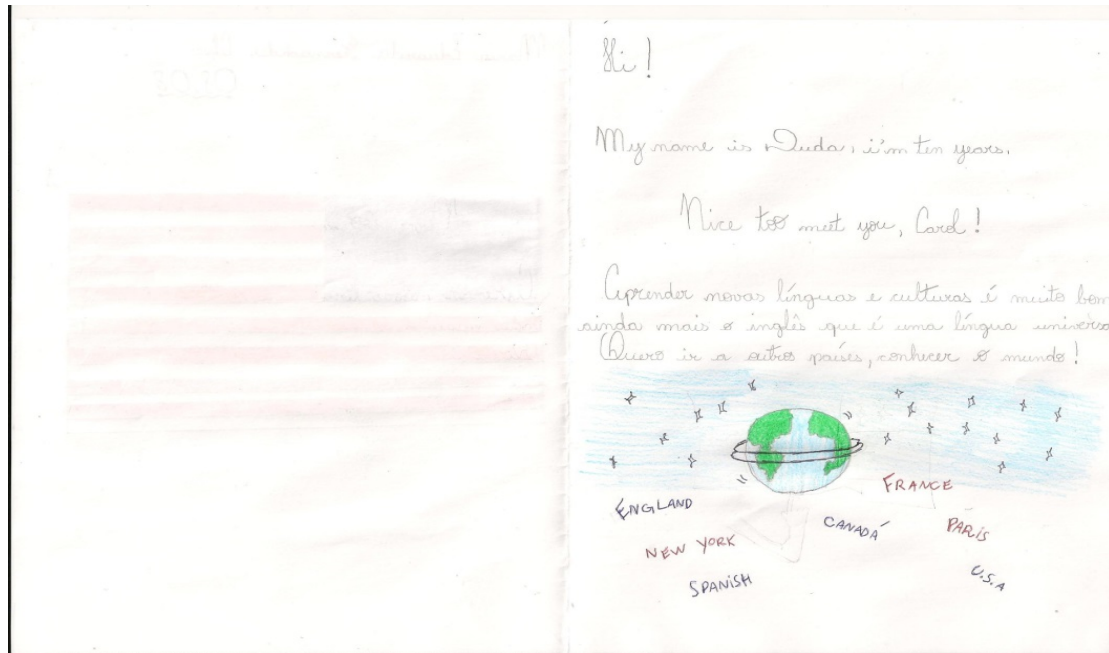 Hi!
My name is Duda, i'm ten years.
Nice too meet you, Carol!
Aprender novas línguas e culturas é muito bom
ainda mais o inglês que é uma língua universa
Quero ir a outros países, conhecer o mundo!
FRANCE
ENGLAND
CANADÁ
PARIS
NEW YORK
U.S.A
SPANISH